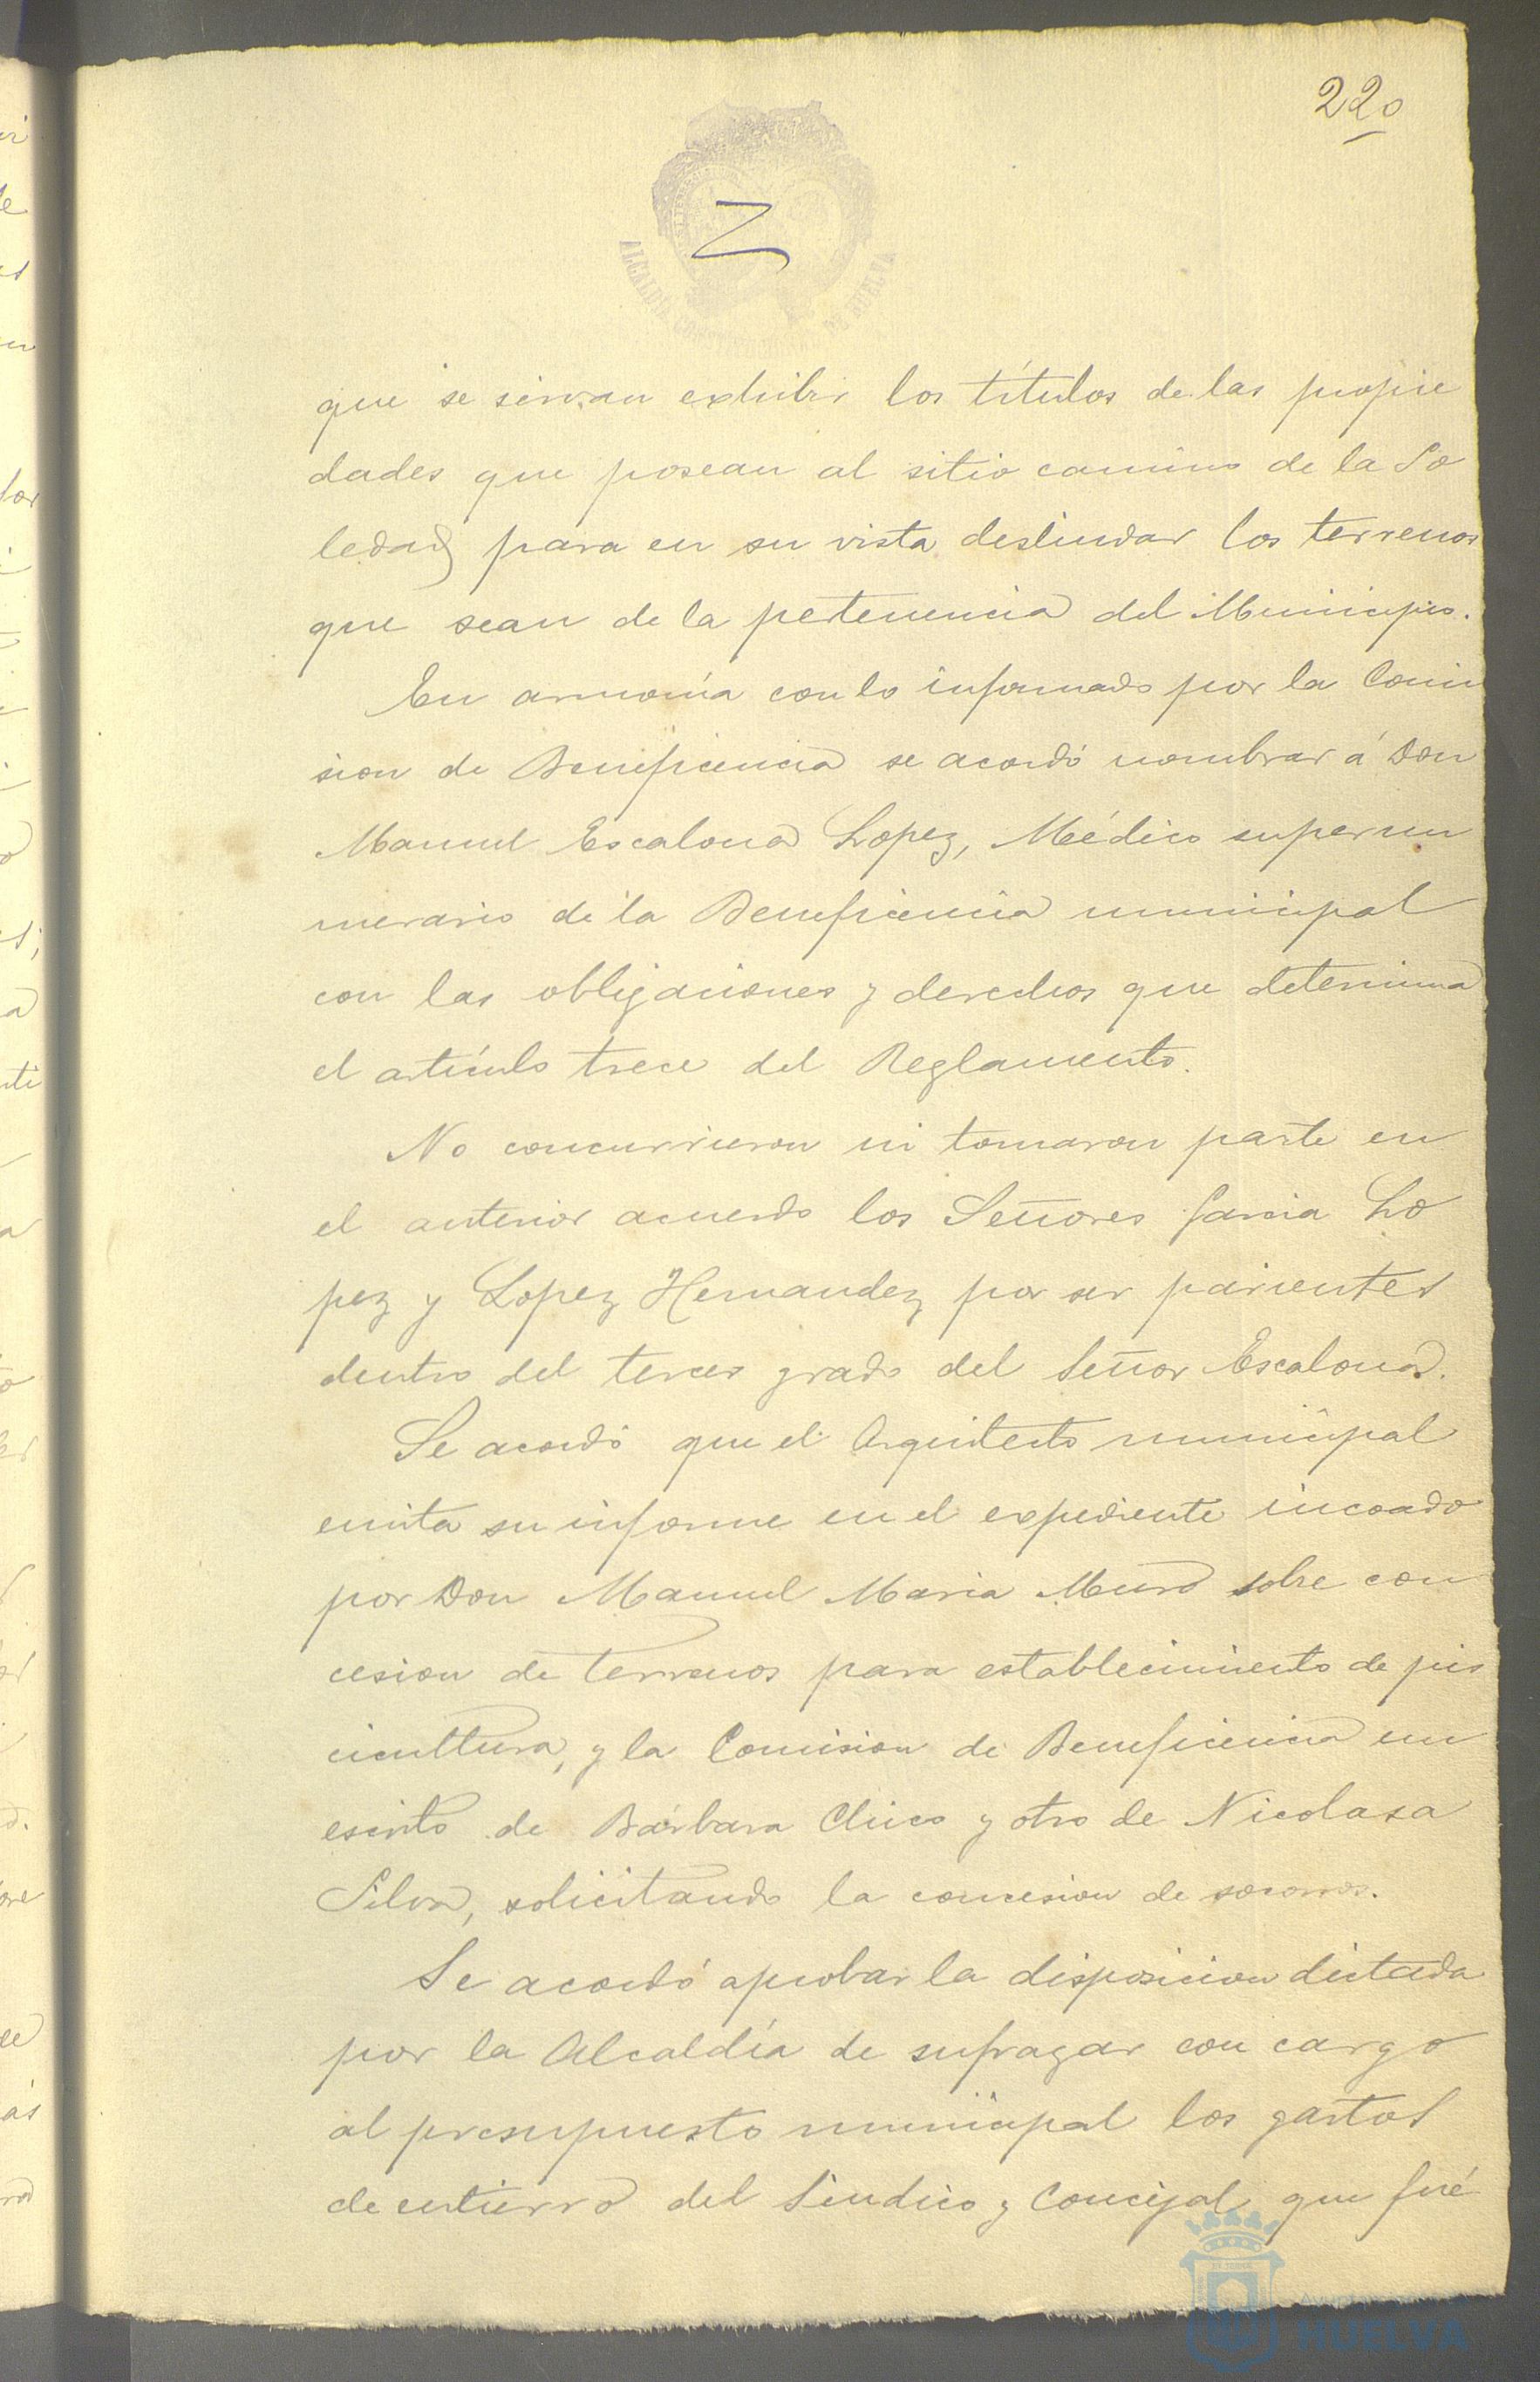 220
ALCALDÍA
DE HUELVA
que se sirvan exhibir los títulos de las propie
dades que posean al sitio camino de la So
ledad para en su vista deslindar los terrenos
que sean de la pertenencia del Municipio.
En armonía con lo informado por la Comi
sion de Beneficencia se acordó nombrar á Don
Manuel Escalona Lopez, Médico supernu
merario de la Beneficencia municipal
con las obligaciones y derechos que determina
el artículo trece del Reglamento.
No concurrieron ni tomaron parte en
el anterior acuerdo los Señores Garcia Lo
pez y Lopez Hernandez por ser parientes
dentro del tercer grado del Señor Escalona.
Se acordó que el Arquitecto municipal
emita su informe en el expediente incoado
por Don Manuel Maria Muro sobre con
cesion de terrenos para establecimiento de pis
cicultura, y la Comision de Beneficencia en
escrito de Bárbara Chico y otro de Nicolasa
Silva, solicitando la concesion de socorros.
Se acordó aprobar la disposicion dictada
por la Alcaldía de sufragar con cargo
al presupuesto municipal los gastos
de entierro del Síndico y Concejal que fué
HUELVA